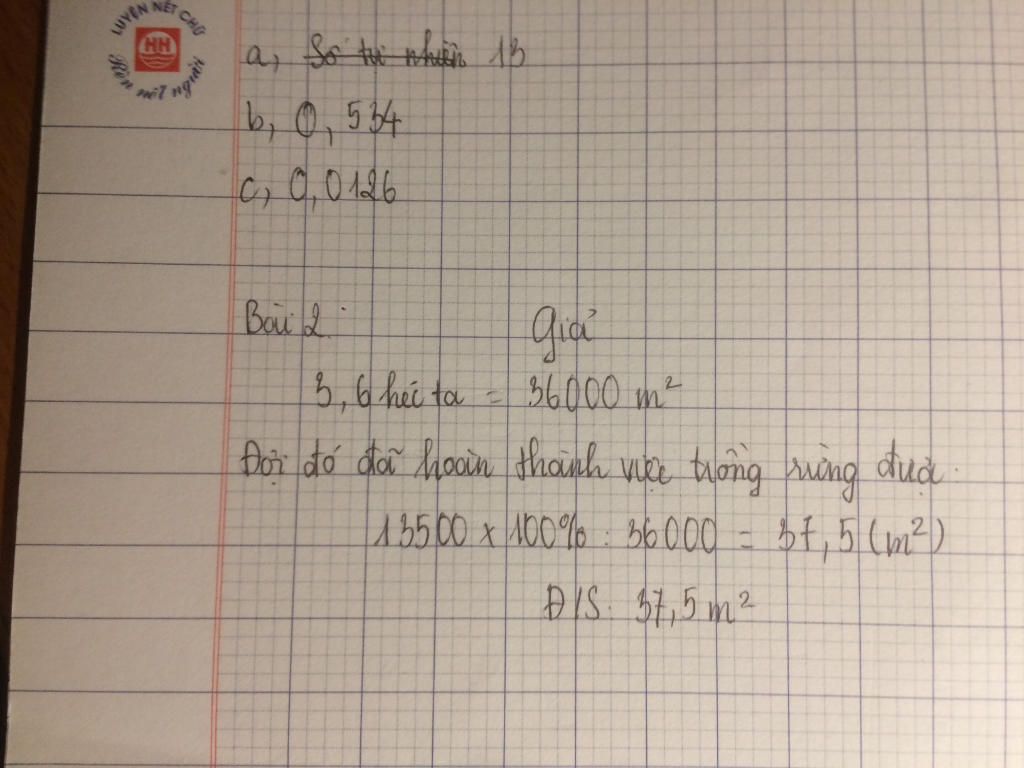 LUYỆN NÉT CHỮ
HH
Rèn nết người
a, Số tự nhiên 13
b, 0, 534
c, 0,0126
Bài 2: Giải
3,6 héc ta = 36000 m²
Đội đó đã hoàn thành việc trồng rừng được:
13500 x 100% : 36000 = 37,5 (m²)
Đ/S: 37,5 m²